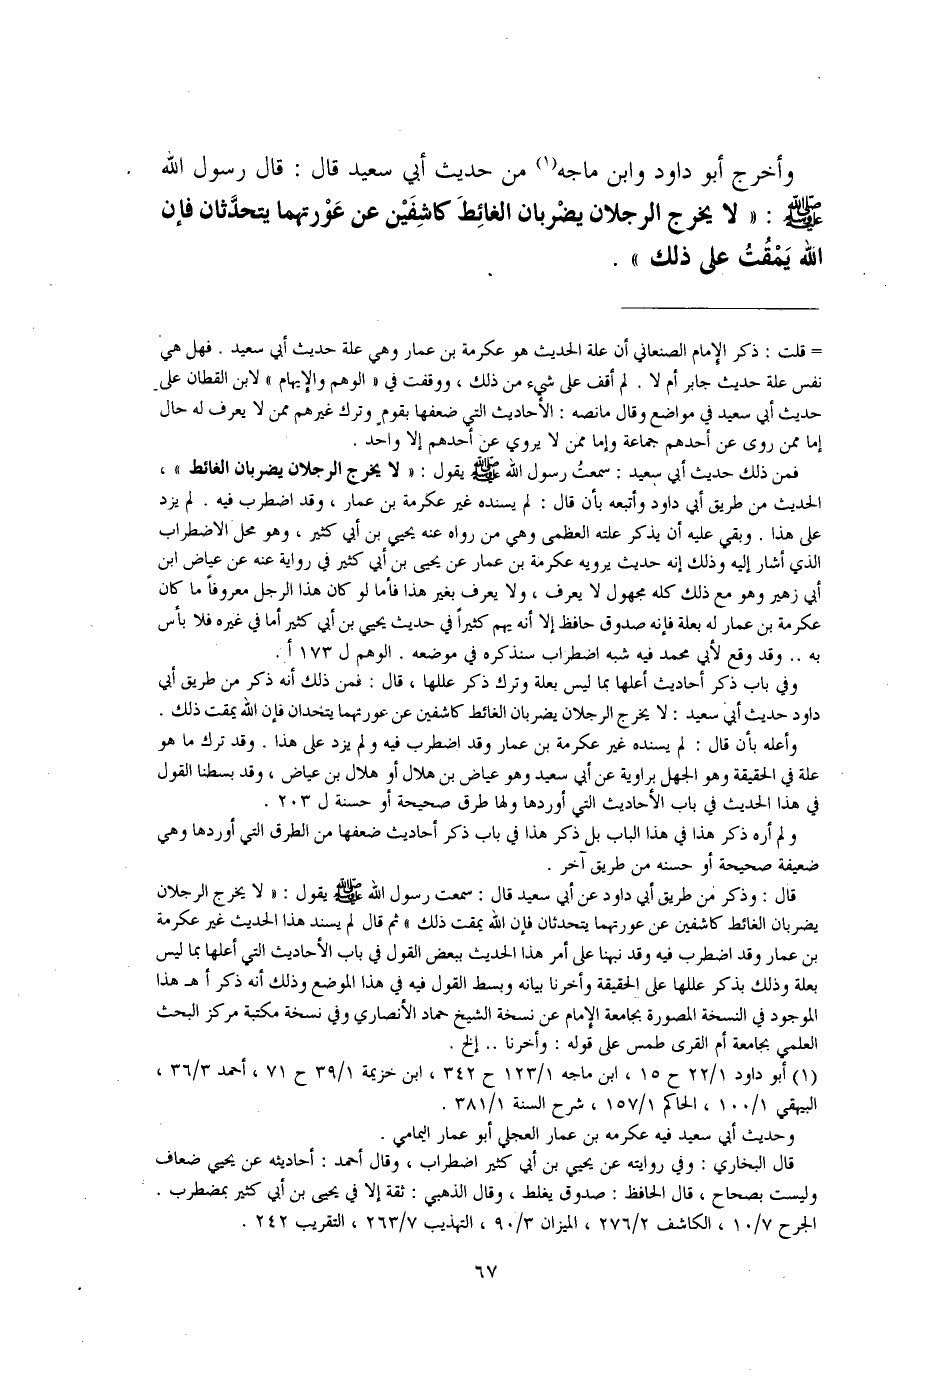 وأخرج أبو داود وابن ماجه(١) من حديث أبي سعيد قال : قال رسول الله
ﷺ : « لا يخرج الرجلان يضْربان الغائِطَ كاشِفَيْن عن عَوْرتهما يتحدَّثان فإن
الله يَمْقُتُ على ذلك » .
= قلت : ذكر الإمام الصنعاني أن علة الحديث هو عكرمة بن عمار وهي علة حديث أبي سعيد . فهل هي
نفس علة حديث جابر أم لا . لم أقف على شيء من ذلك ، ووقفت في « الوهم والإيهام » لابن القطان على
حديث أبي سعيد في مواضع وقال مانصه : الأحاديث التي ضعفها بقوم وترك غيرهم ممن لا يعرف له حال
إما ممن روى عن أحدهم جماعة وإما ممن لا يروي عن أحدهم إلا واحد .
فمن ذلك حديث أبي سعيد : سمعتُ رسول الله ﷺ يقول : « لا يخرج الرجلان يضربان الغائط » ،
الحديث من طريق أبي داود وأتبعه بأن قال : لم يسنده غير عكرمة بن عمار ، وقد اضطرب فيه . لم يزد
على هذا . وبقي عليه أن يذكر علته العظمى وهي من رواه عنه يحيى بن أبي كثير ، وهو محل الاضطراب
الذي أشار إليه وذلك إنه حديث يرويه عكرمة بن عمار عن يحيى بن أبي كثير في رواية عنه عن عياض ابن
أبي زهير وهو مع ذلك كله مجهول لا يعرف ، ولا يعرف بغير هذا فأما لو كان هذا الرجل معروفاً ما كان
عكرمة بن عمار له بعلة فإنه صدوق حافظ إلا أنه يهم كثيراً في حديث يحيى بن أبي كثير أما في غيره فلا بأس
به .. وقد وقع لأبي محمد فيه شبه اضطراب سنذكره في موضعه . الوهم ل ١٧٣ أ .
وفي باب ذكر أحاديث أعلها بما ليس بعلة وترك ذكر عللها ، قال : فمن ذلك أنه ذكر من طريق أبي
داود حديث أبي سعيد : لا يخرج الرجلان يضربان الغائط كاشفين عن عورتهما يتحدان فإن الله يمقت ذلك .
وأعله بأن قال : لم يسنده غير عكرمة بن عمار وقد اضطرب فيه ولم يزد على هذا . وقد ترك ما هو
علة في الحقيقة وهو الجهل براوية عن أبي سعيد وهو عياض بن هلال أو هلال بن عياض ، وقد بسطنا القول
في هذا الحديث في باب الأحاديث التي أوردها ولها طرق صحيحة أو حسنة ل ٢٠٣ .
ولم أره ذكر هذا في هذا الباب بل ذكر هذا في باب ذكر أحاديث ضعفها من الطرق التي أوردها وهي
ضعيفة صحيحة أو حسنه من طريق آخر .
قال : وذكر من طريق أبي داود عن أبي سعيد قال : سمعت رسول الله ﷺ يقول : « لا يخرج الرجلان
يضربان الغائط كاشفين عن عورتهما يتحدثان فإن الله يمقت ذلك » ثم قال لم يسند هذا الحديث غير عكرمة
بن عمار وقد اضطرب فيه وقد نبهنا على أمر هذا الحديث ببعض القول في باب الأحاديث التي أعلها بما ليس
بعلة وذلك بذكر عللها على الحقيقة وأخرنا بيانه وبسط القول فيه في هذا الموضع وذلك أنه ذكر أ هـ هذا
الموجود في النسخة المصورة بجامعة الإمام عن نسخة الشيخ حماد الأنصاري وفي نسخة مكتبة مركز البحث
العلمي بجامعة أم القرى طمس على قوله : وأخرنا .. إلخ .
(١) أبو داود ٢٢/١ ح ١٥ ، ابن ماجه ١٢٣/١ ح ٣٤٢ ، ابن خزيمة ٣٩/١ ح ٧١ ، أحمد ٣٦/٣ ،
البيهقي ١٠٠/١ ، الحاكم ١٥٧/١ ، شرح السنة ٣٨١/١ .
وحديث أبي سعيد فيه عكرمه بن عمار العجلي أبو عمار اليمامي .
قال البخاري : وفي روايته عن يحيى بن أبي كثير اضطراب ، وقال أحمد : أحاديثه عن يحيى ضعاف
وليست بصحاح ، قال الحافظ : صدوق يغلط ، وقال الذهبي : ثقة إلا في يحيى بن أبي كثير بمضطرب .
الجرح ١٠/٧ ، الكاشف ٢٧٦/٢ ، الميزان ٩٠/٣ ، التهذيب ٢٦٣/٧ ، التقريب ٢٤٢ .
٦٧